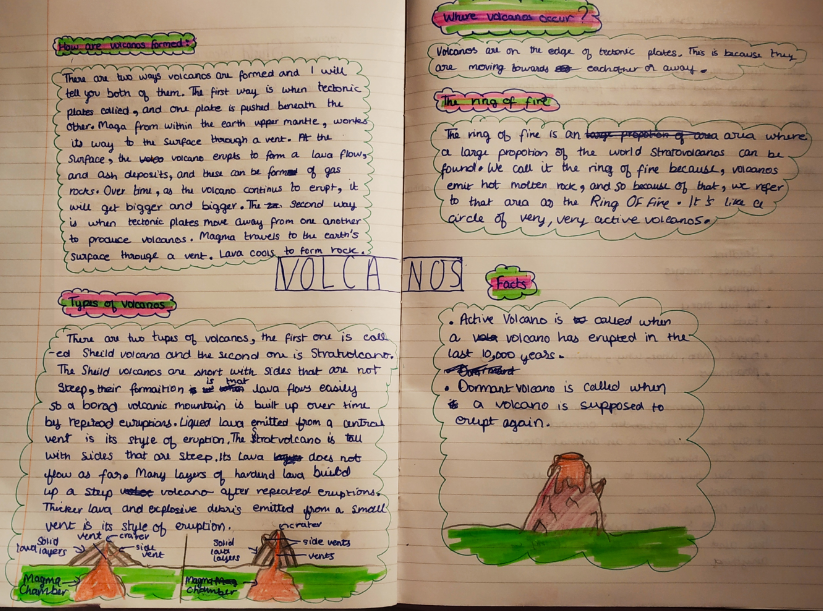 How are volcanos formed?
There are two ways volcanos are formed and I will
tell you both of them. The first way is when tectonic
plates collied, and one plate is pushed beneath the
other. Maga from within the earth upper mantle, works
its way to the surface through a vent. At the
Surface, the volcano erupts to form a lava flow,
and ash deposits, and these can be form of gas
rocks. Over time, as the volcano continus to erupt, it
will get bigger and bigger. The Second way
is when tectonic plates move away from one another
to produce volcanos. Magma travels to the earth's
surface through a vent. Lava cools to form rock.
VOLCANOS
Types of Volcanos
There are two types of volcanos, the first one is call
-ed Sheild volcano and the second one is Stratvolcano.
The Shuild volcanos are short with sides that are not
Steep, their formaition is that lava flows easily
so a borad volcanic mountain is built up over time
by repitead euruptions. Liqued lava emitted from a central
vent is its style of eruption. The Stratvolcano is tall
with sides that are steep. Its lava does not
flow as far. Many layers of hardend lava build
up a steep volcano after repeated eruptions.
Thicker lava and explosive debris emitted from a small
vent is its style of eruption.
Solid lava layers
vent
crater
side vent
Magma Chamber
Solid lava layers
crater
side vents
vents
Magma Chamber
Where volcanos occur?
Volcanos are on the edge of tectonic plates. This is because they
are moving towards eachother or away.
The ring of fire
The ring of fire is an area where
a large propotion of the world Stratovolcanos can be
found. We call it the ring of fire because, volcanos
emit hot molten rock, and so because of that, we refer
to that area as the Ring OF Fire. It's like a
circle of very, very active volcanos.
Facts
• Active Volcano is called when
a volcano has erupted in the
last 10,000 years.
• Dormant volcano is called when
a volcano is supposed to
erupt again.